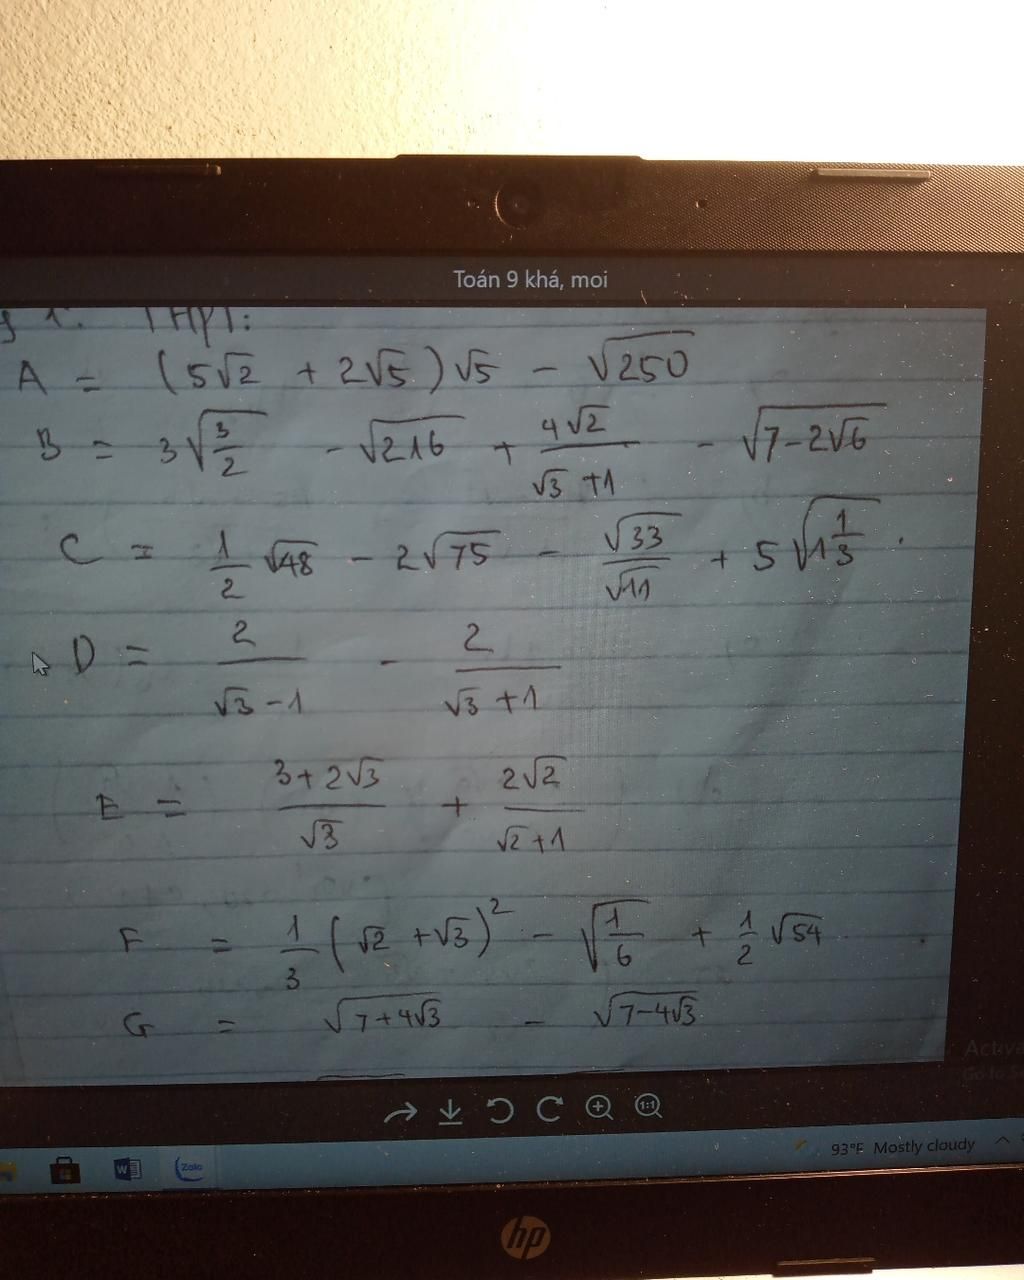 Toán 9 khá, moi
1. THPT:
A = (5√2 + 2√5)√5 - √250
B = 3√(3/2) - √216 + (4√2)/(√3 + 1) - √(7 - 2√6)
C = 1/2 √48 - 2√75 - √33/√11 + 5√(1 1/3).
D = 2/(√3 - 1) - 2/(√3 + 1)
E = (3 + 2√3)/√3 + (2√2)/(√2 + 1)
F = 1/3 (√2 + √3)² - √(1/6) + 1/2 √54
G = √(7 + 4√3) - √(7 - 4√3)
1:1
Zalo
93°F Mostly cloudy
hp